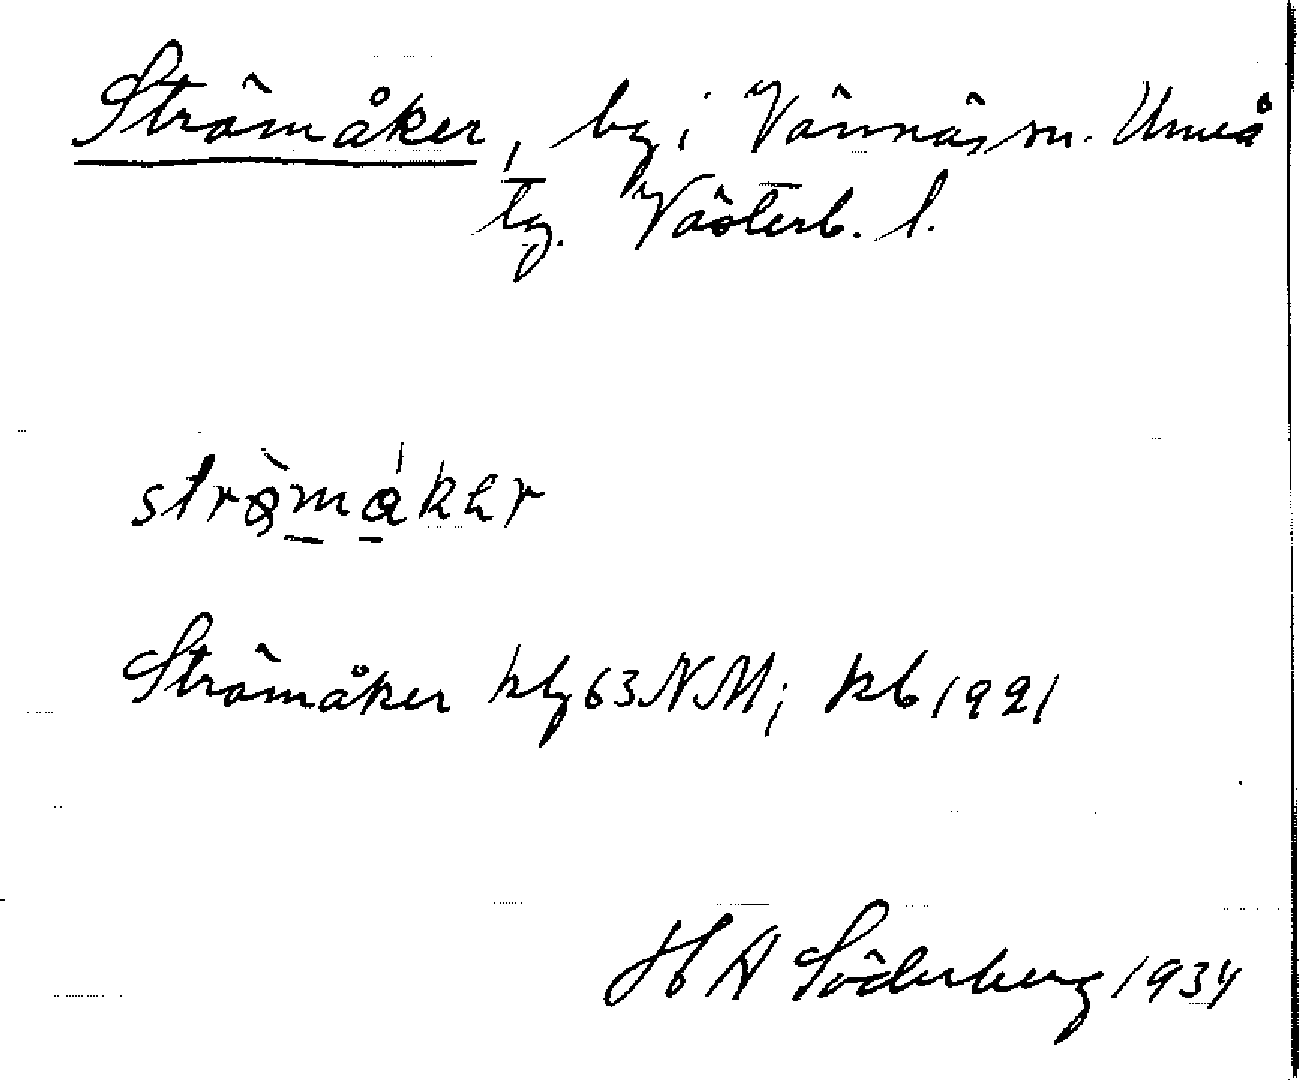 Strömåker, by i Vännäs sn. Umeå
tg. Västerb. l.
Strömåker kbg 63 NM; kb 1921
H A Söderberg 1934